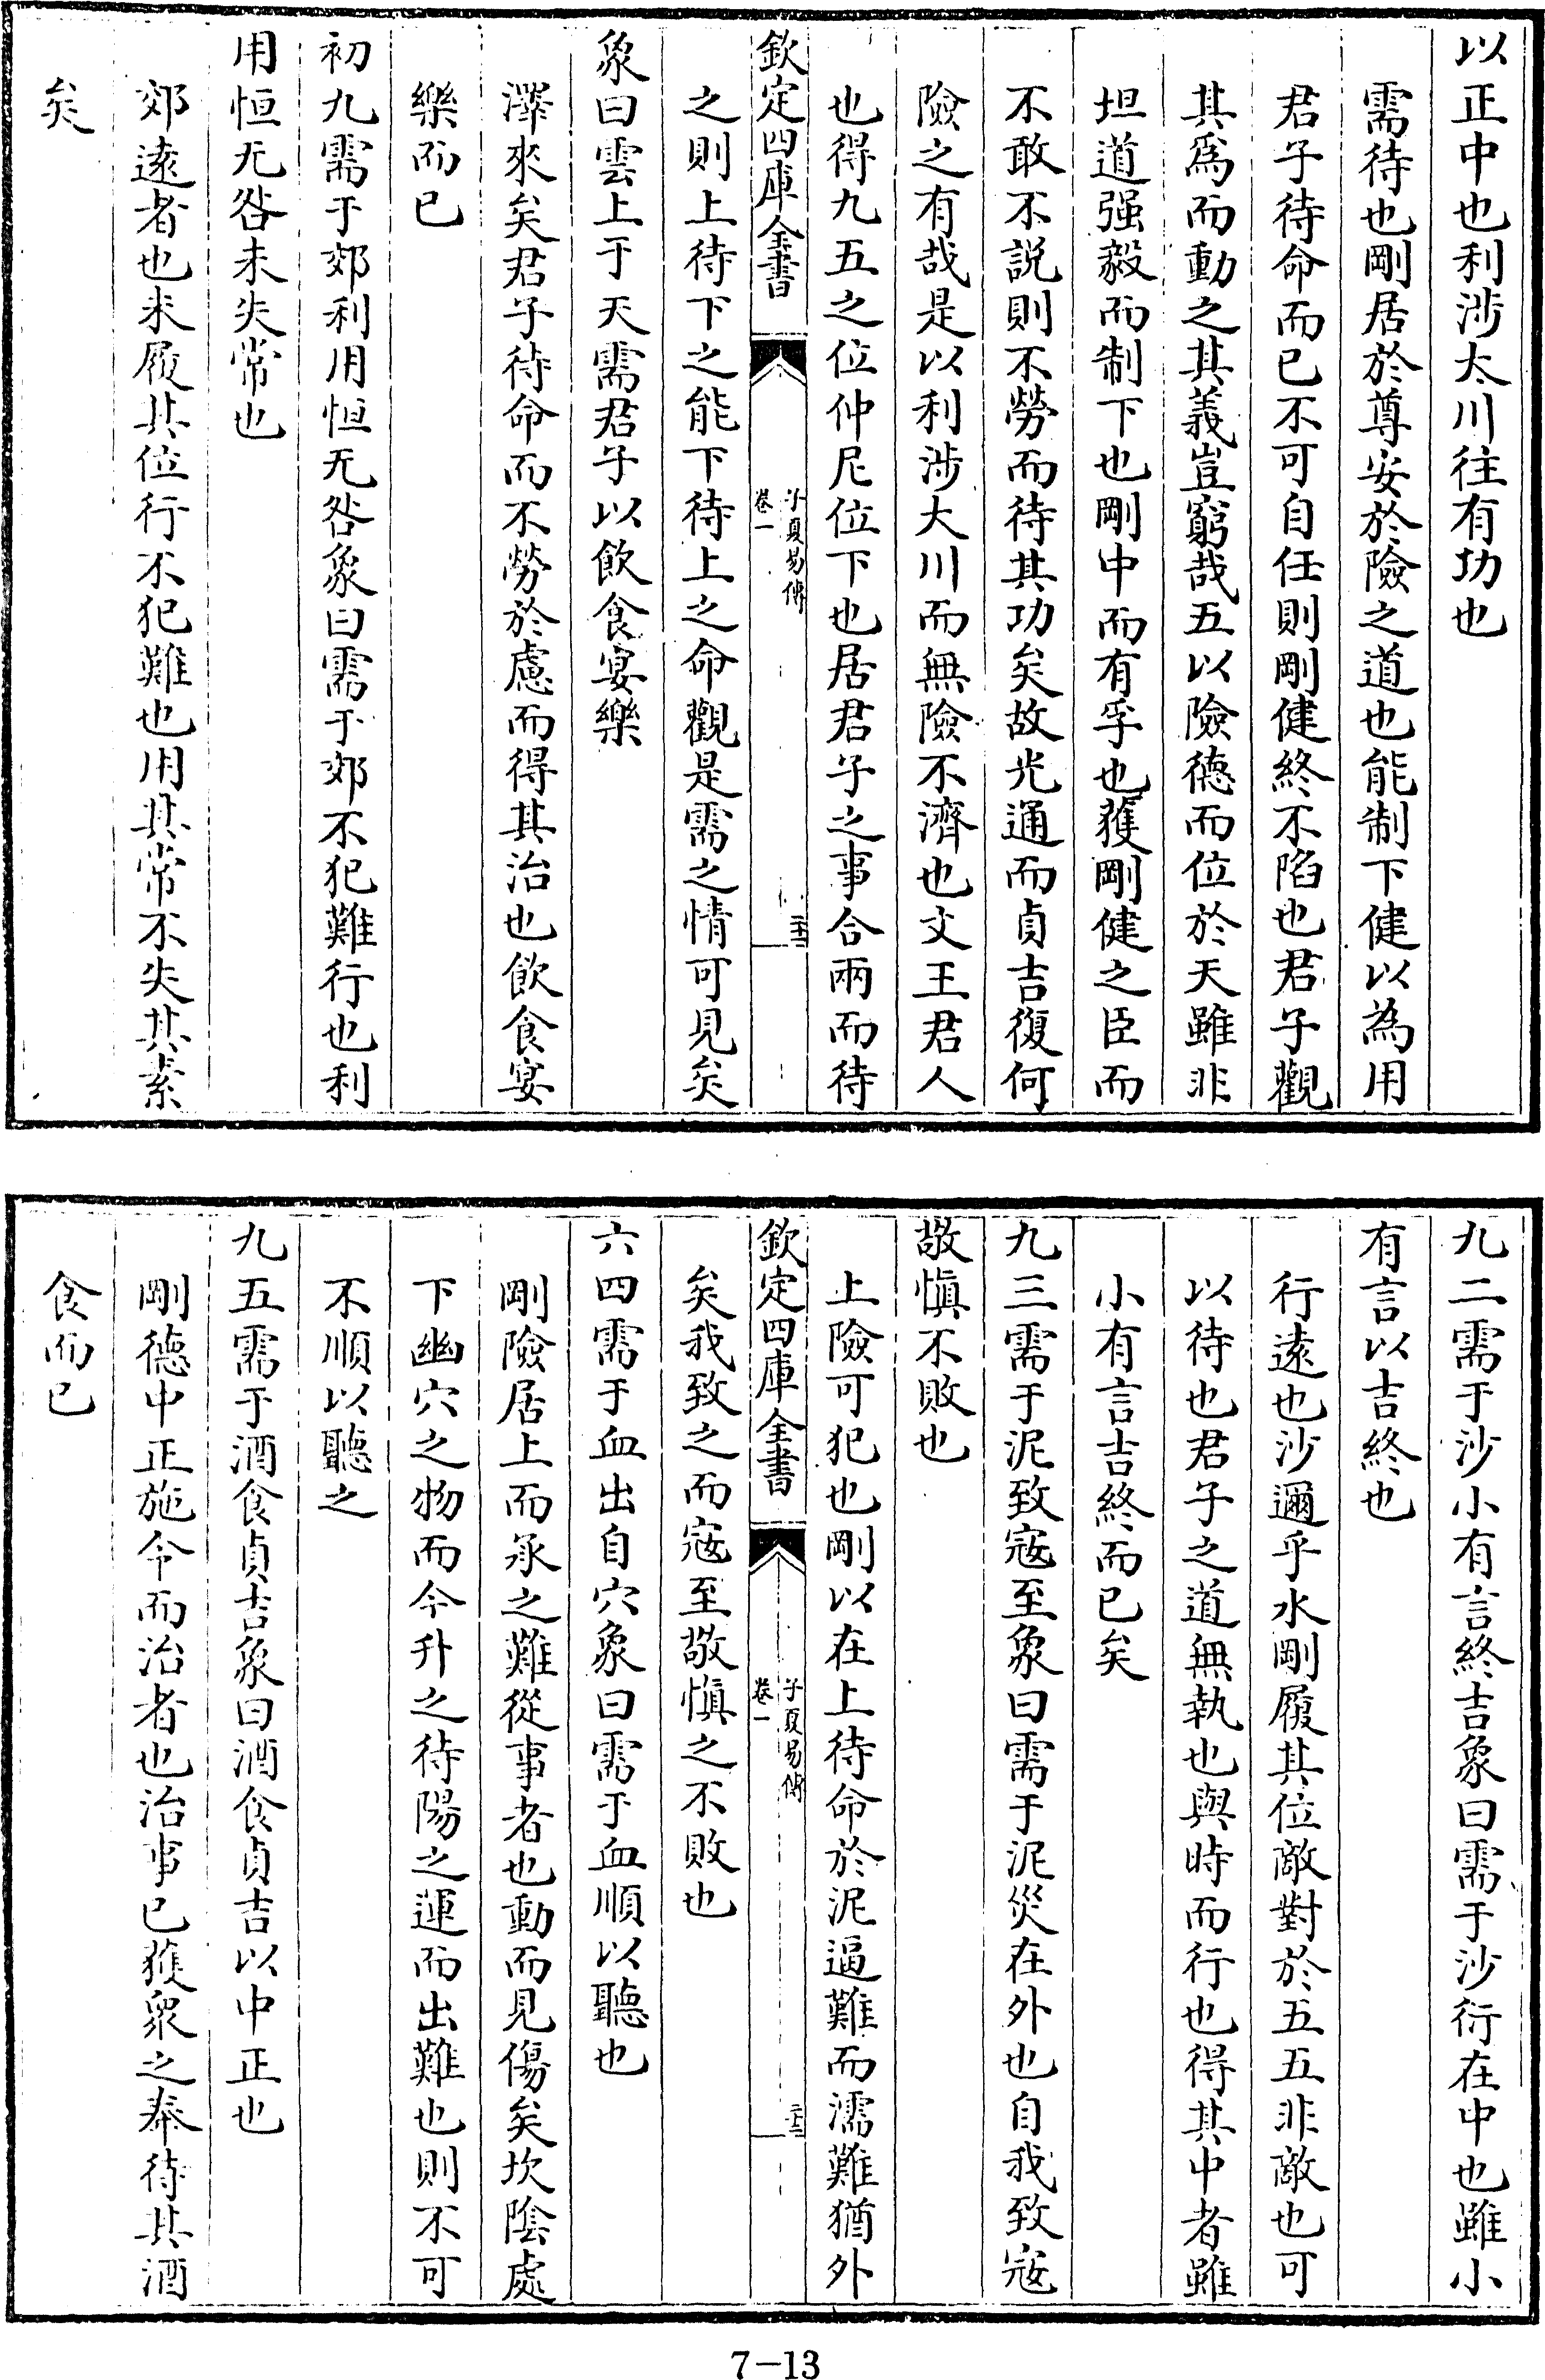 以正中也利涉大川往有功也
需待也剛居於尊安於險之道也能制下健以為用
君子待命而已不可自任則剛健終不陷也君子觀
其爲而動之其義豈窮哉五以險德而位於天雖非
坦道强毅而制下也剛中而有孚也獲剛健之臣而
不敢不説則不勞而待其功矣故光通而貞吉復何
險之有哉是以利涉大川而無險不濟也文王君人
也得九五之位仲尼位下也居君子之事合兩而待
欽定四庫全書
子夏易傳
卷一
二十二
之則上待下之能下待上之命觀是需之情可見矣
象曰雲上于天需君子以飲食宴樂
澤來矣君子待命而不勞於慮而得其治也飲食宴
樂而已
初九需于郊利用恒无咎象曰需于郊不犯難行也利
用恒无咎未失常也
郊遠者也未履其位行不犯難也用其常不失其素
矣
九二需于沙小有言終吉象曰需于沙衍在中也雖小
有言以吉終也
行遠也沙邇乎水剛履其位敵對於五五非敵也可
以待也君子之道無執也與時而行也得其中者雖
小有言吉終而已矣
九三需于泥致宼至象曰需于泥災在外也自我致宼
敬慎不敗也
上險可犯也剛以在上待命於泥逼難而濡難猶外
欽定四庫全書
子夏易傳
卷一
二十三
矣我致之而宼至敬慎之不敗也
六四需于血出自穴象曰需于血順以聽也
剛險居上而承之難從事者也動而見傷矣坎陰處
下幽穴之物而今升之待陽之運而出難也則不可
不順以聽之
九五需于酒食貞吉象曰酒食貞吉以中正也
剛德中正施令而治者也治事已獲衆之奉待其酒
食而已
7-13